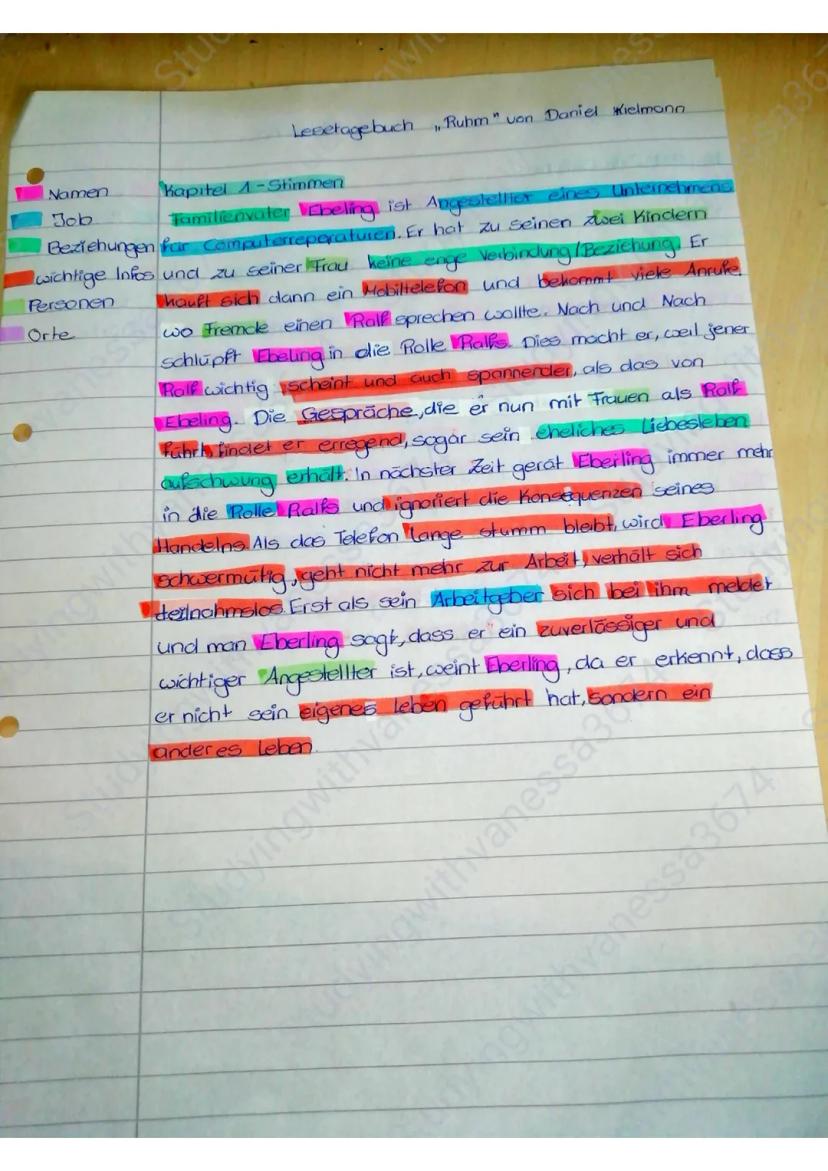 Lesetagebuch „Ruhm" von Daniel Kielmann
Namen
Job
Beziehungen
wichtige Infos
Personen
Orte
Kapitel 1 - Stimmen
Familienvater Ebeling ist Angestellter eines Unternehmens
für Computerreperaturen. Er hat zu seinen zwei Kindern
und zu seiner Frau keine enge Verbindung/Beziehung. Er
kauft sich dann ein Mobiltelefon und bekommt viele Anrufe,
wo Fremde einen Ralf sprechen wollte. Nach und Nach
schlüpft Ebeling in die Rolle Ralfs. Dies macht er, weil jener
Ralf wichtig scheint und auch spannender, als das von
Ebeling. Die Gespräche, die er nun mit Frauen als Ralf
führt findet er erregend, sogar sein eheliches Liebesleben
aufschwung erhält. In nächster Zeit gerät Eberling immer mehr
in die Rolle Ralfs und ignoriert die Konsequenzen seines
Handelns. Als das Telefon lange stumm bleibt, wird Eberling
schwermütig, geht nicht mehr zur Arbeit, verhält sich
teilnahmslos. Erst als sein Arbeitgeber sich bei ihm meldet
und man Eberling sagt, dass er ein zuverlässiger und
wichtiger Angestellter ist, weint Eberling, da er erkennt, dass
er nicht sein eigenes leben geführt hat, sondern ein
anderes leben.
Studyingwithvanessa3674